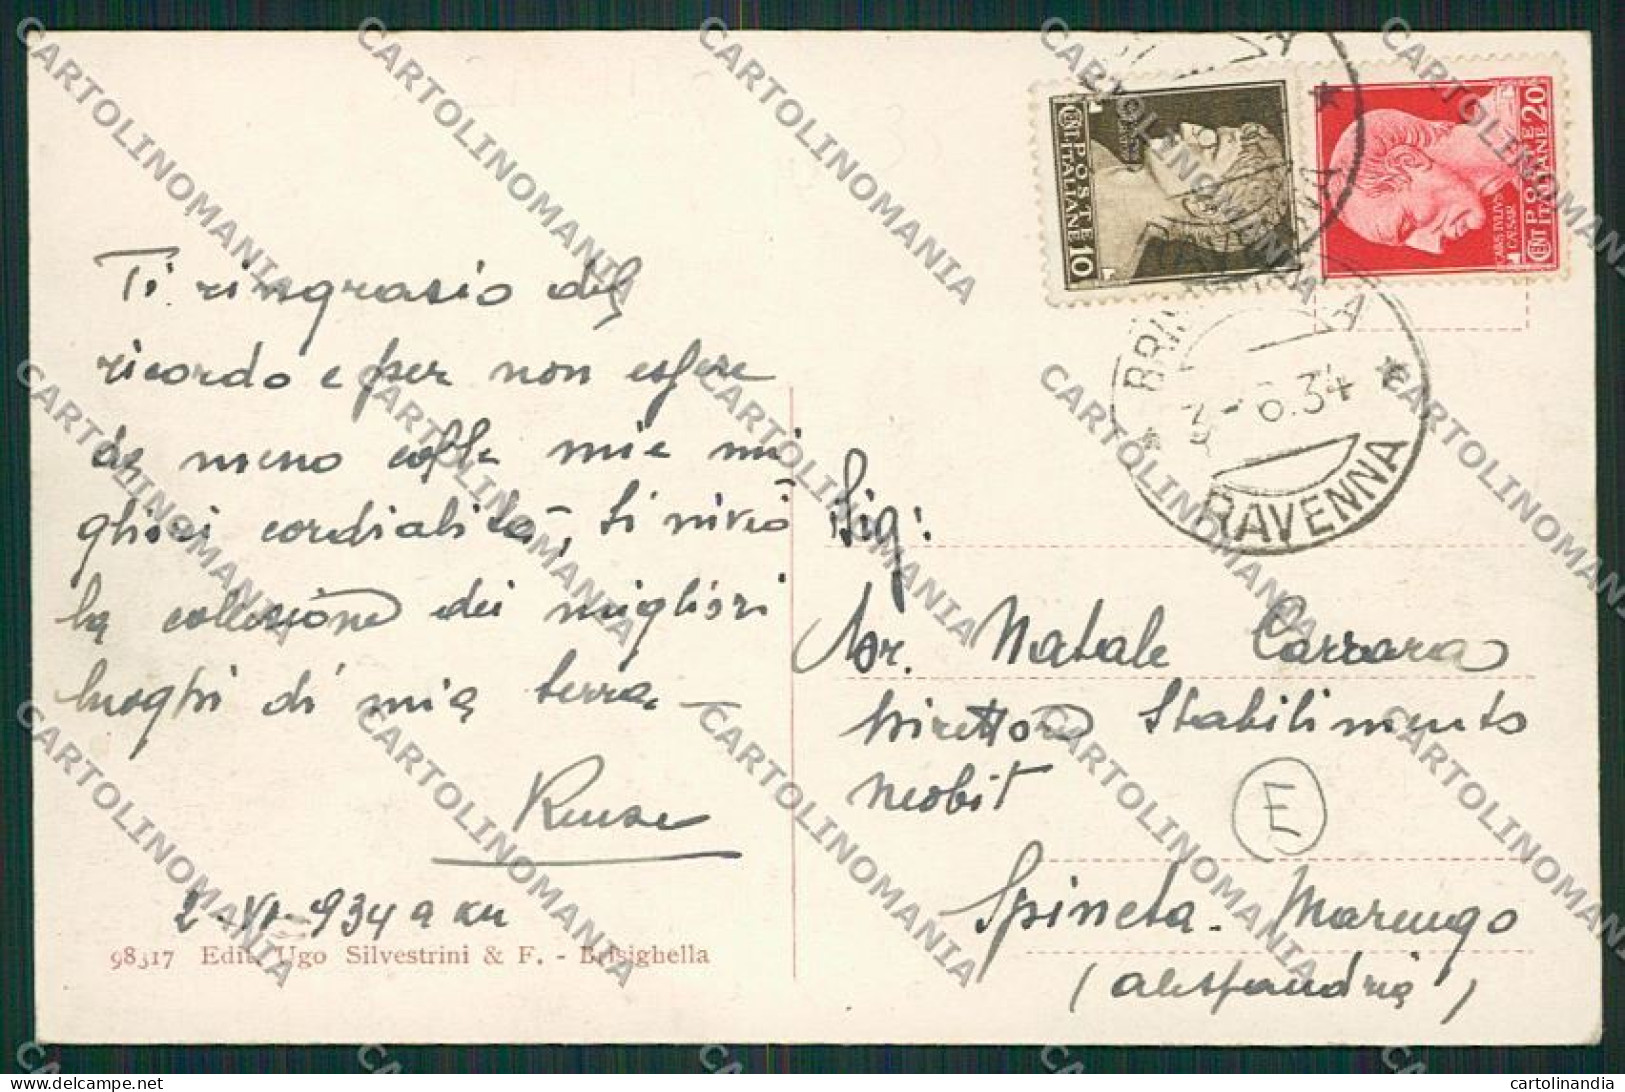 Ti ringrazio del
ricordo e per non essere
da meno colle mie mi
gliori cordialità, ti invio
la collezione dei migliori
luoghi di mia terra.
2-VI-934 a XII
98317 Edit. Ugo Silvestrini & F. - Brisighella
POSTE ITALIANE CENT 10
POSTE ITALIANE CENT 20
CAIVS IVLIVS CAESAR
3-6.34
RAVENNA
Sig:
Natale Carrara
Direttore Stabilimento
Neobit
E
Spineta-Marengo
(Alessandria)
CARTOLINOMANIA
cartolinandia